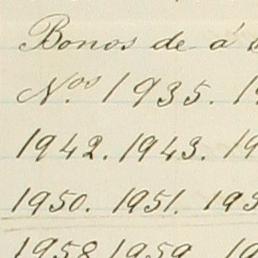 Bonos de á
Nos 1935.
1942. 1943. 19
1950. 1951. 195
1958 1959